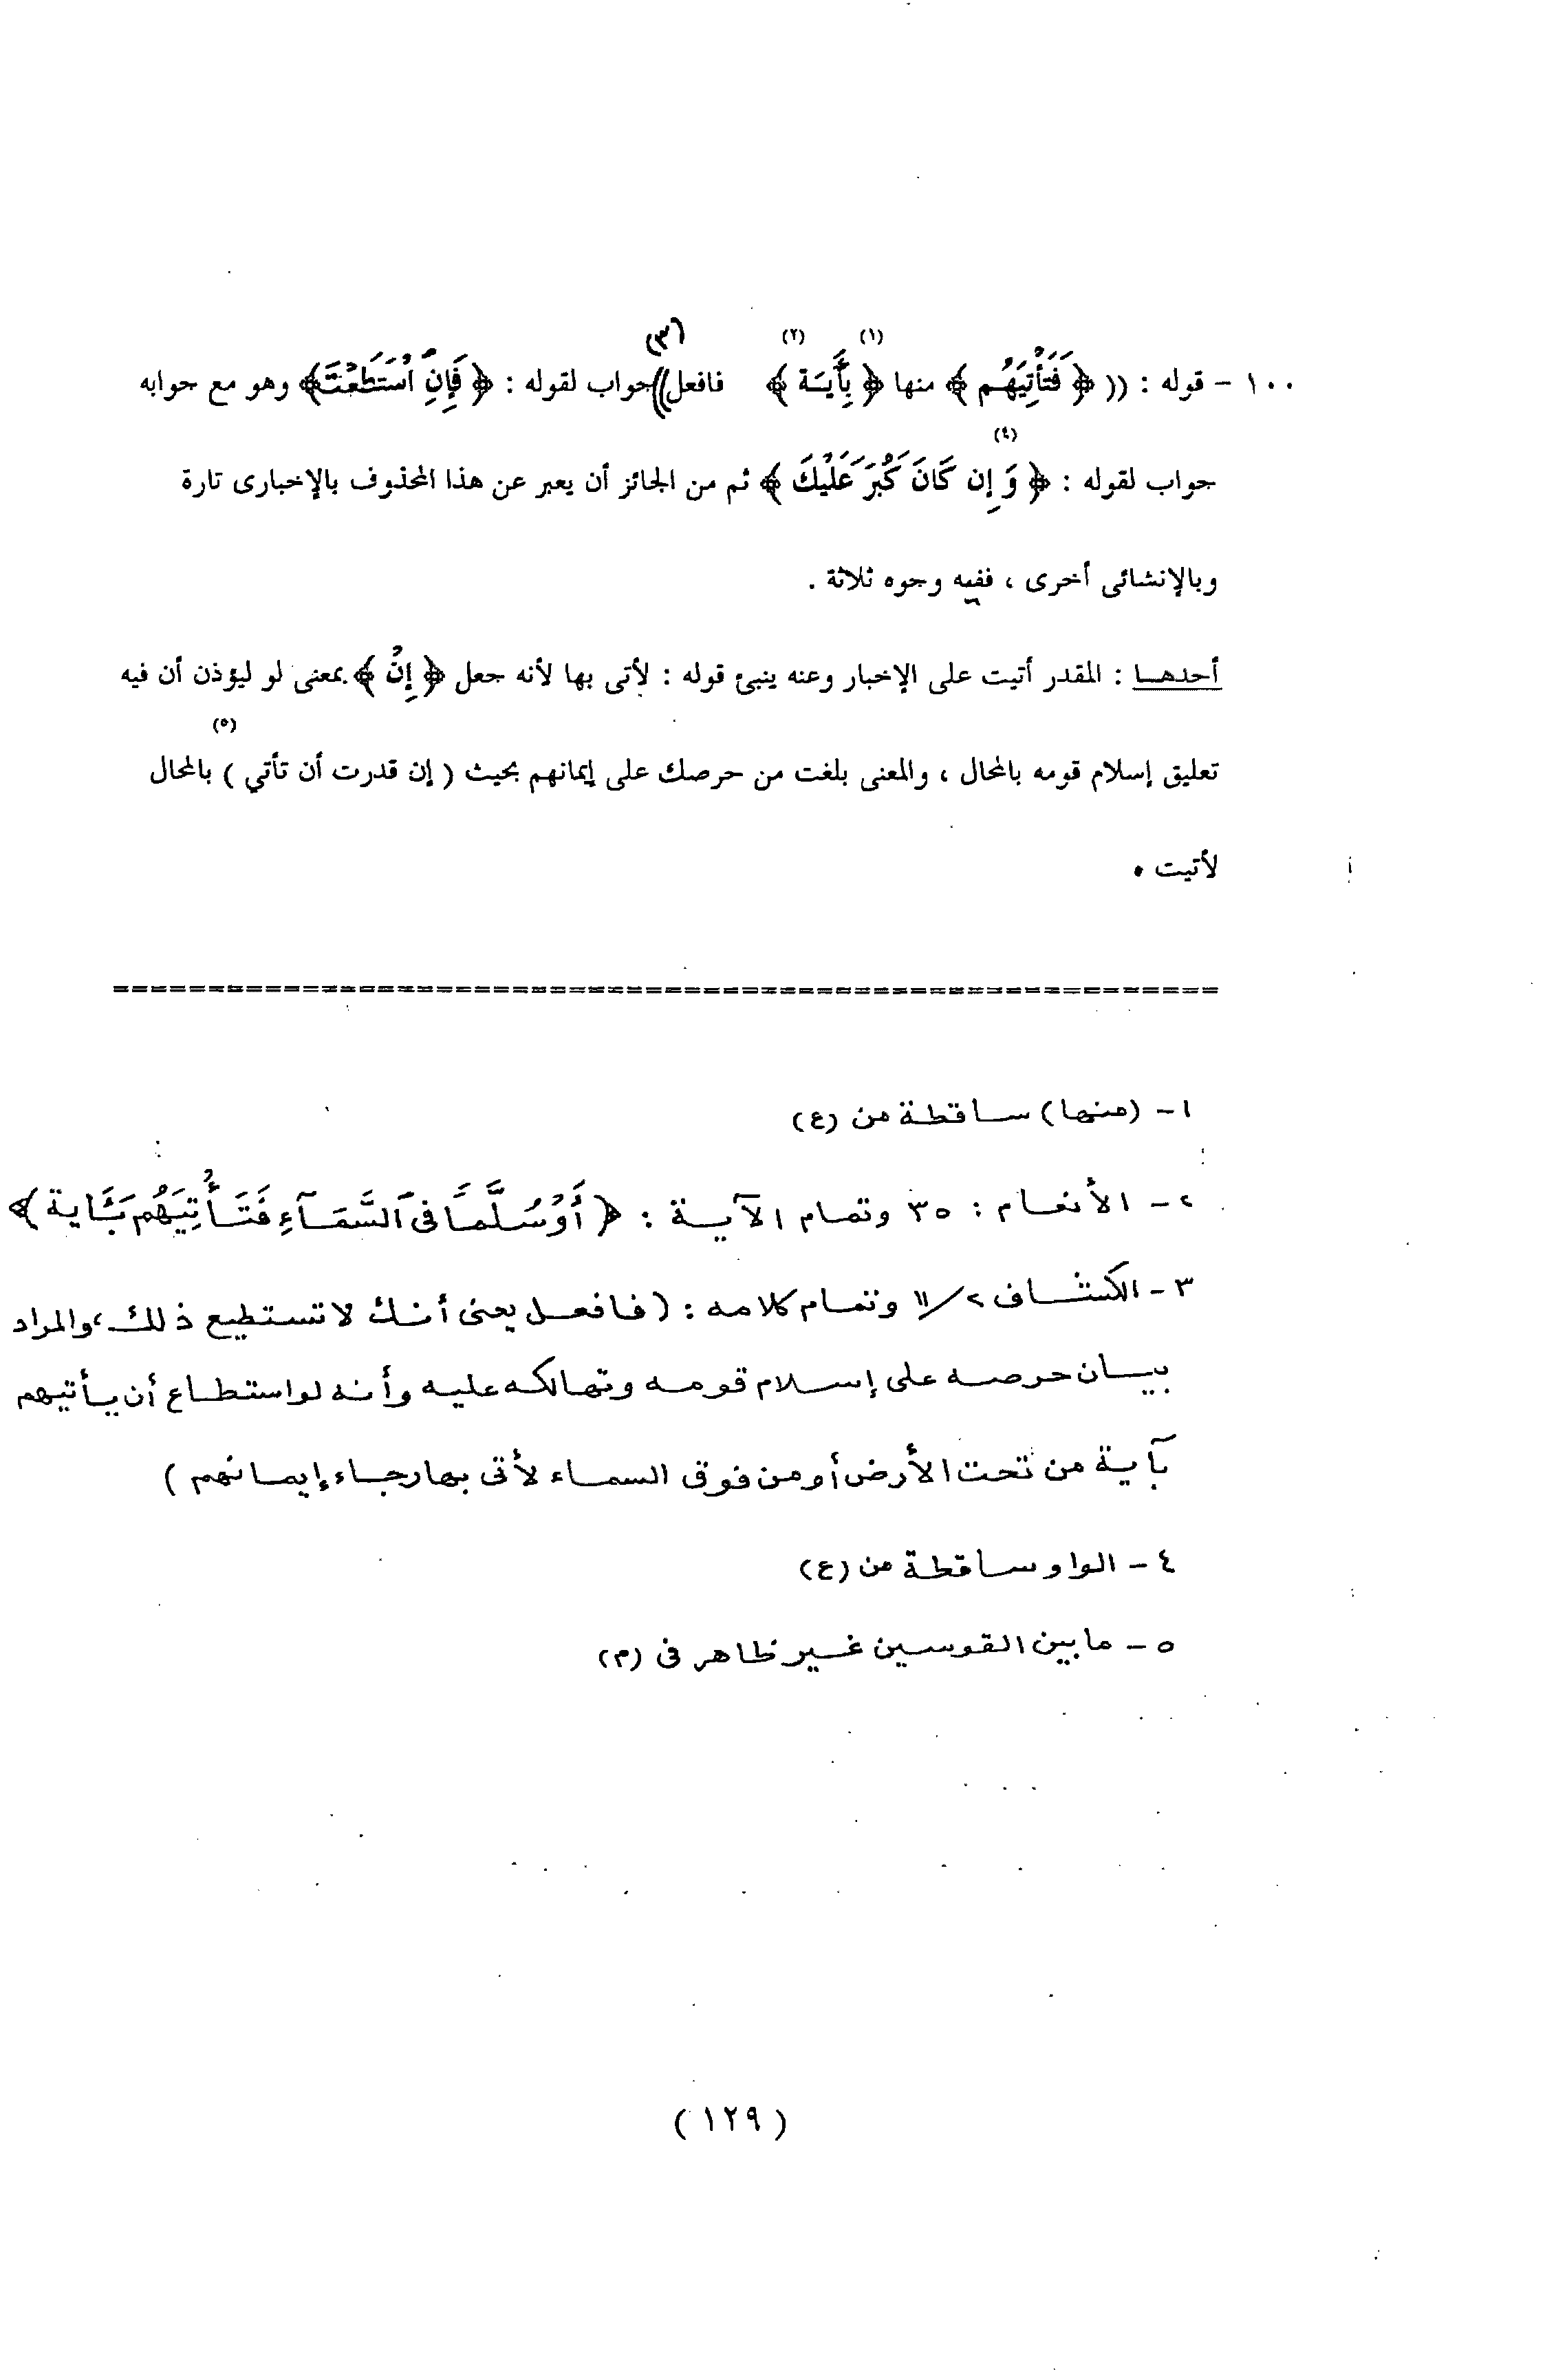 (١) (٢) (٣)
١٠٠ - قوله : (( ﴿ فَتَأْتِيَهُم ﴾ منها ﴿ بِآيَة ﴾ فافعل)) جواب لقوله : ﴿ فَإِنِ اسْتَطَعْتَ ﴾ وهو مع جوابه
(٤)
جواب لقوله : ﴿ وَ إِن كَانَ كَبُرَ عَلَيْكَ ﴾ ثم من الجائز أن يعبر عن هذا المحذوف بالإخبارى تارة
وبالإنشائى أخرى ، ففيه وجوه ثلاثة .
أحدهــا : المقدر أتيت على الإخبار وعنه ينبئ قوله : لأتى بها لأنه جعل ﴿ إِنْ ﴾ بمعنى لو ليؤذن أن فيه
(٥)
تعليق إسلام قومه بالمحال ، والمعنى بلغت من حرصك على إيمانهم بحيث ( إن قدرت أن تأتي ) بالمحال
لأتيت .
===========================================================
١ - (منها) ساقطة من (ع)
٢ - الأنعام : ٣٥ وتمام الآية : ﴿ أَوْ سُلَّمًا فِى السَّمَآءِ فَتَأْتِيَهُم بِئَاية ﴾
٣ - الكشاف ٢/ ١١ وتمام كلامه : ( فافعل يعنى أنك لا تستطيع ذلك ، والمراد
بيان حرصه على إسلام قومه وتهالكه عليه وأنه لو استطاع أن يأتيهم
بآية من تحت الأرض أو من فوق السماء لأتى بها رجاء إيمانهم )
٤ - الواو ساقطة من (ع)
٥ - ما بين القوسين غير ظاهر فى (م)
( ١٢٩ )